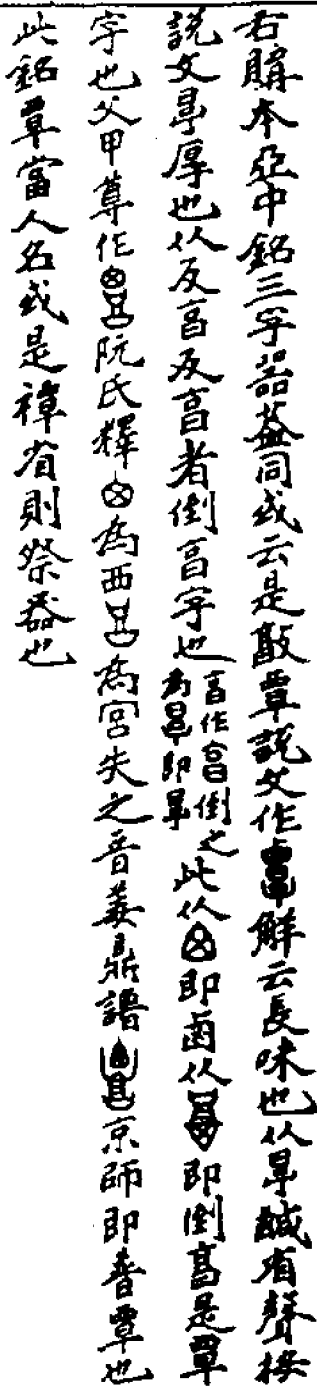 右購本亞中銘三字器葢同或云是敢覃説文作𪉷解云長味也从㫗鹹省聲按
説文㫗厚也从反亯反亯者倒亯字也亯作亯倒之為㫗即㫗此从即鹵从即倒亯是覃
字也父甲尊作阮氏釋為西為宮失之晉姜鼎譖京師即晉覃也
此銘覃當人名或是禫省則祭器也